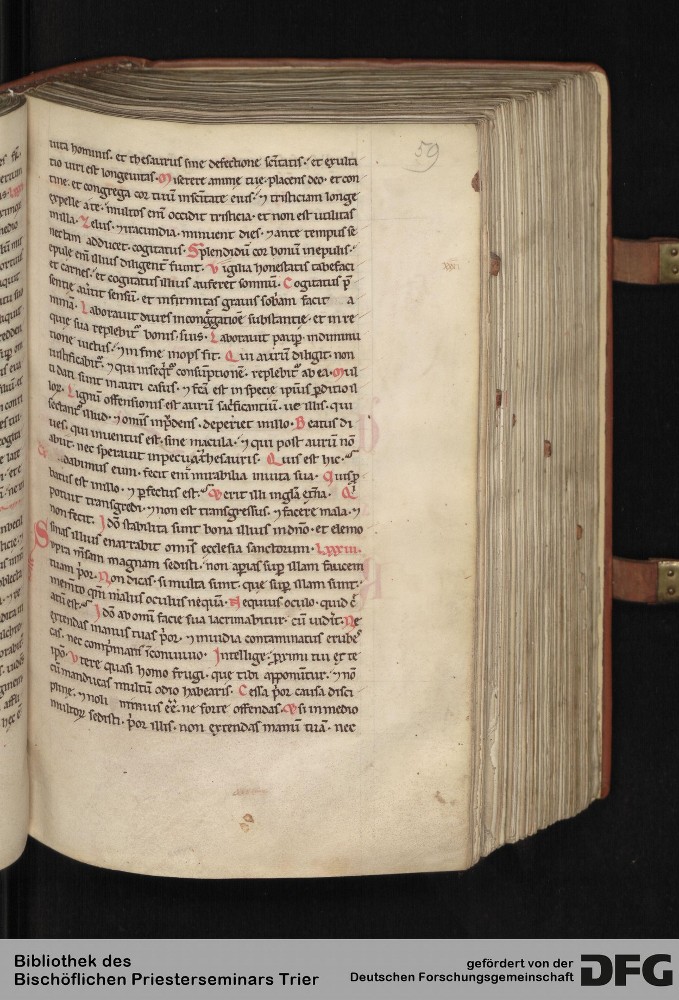 59
uita hominis. et thesaurus sine defectione scitatis. et exulta
tio uiri est longeuitas. Miserere anime tue placens deo. et con
tine. et congrega cor tuum in scitate eius. ⁊ tristiciam longe
expelle a te. multos eni occidit tristicia. et non est utilitas
in illa. Zelus. ⁊ iracundia. minuent dies. ⁊ ante tempus se
nectam adducet. cogitatus. Splendidu cor bonu in epulis.
epule eni illius diligent fiunt. Vigilia honestatis tabefaci
et carnes. et cogitatus illius auferet somnu. Cogitatus p
sentie auertit sensu. et infirmitas grauis sobriam facit a
nima. Laborauit diues in congregatione substantie. et in re
quie sua replebit bonis suis. Laborauit paup. in diminu
tione uictus. ⁊ in fine inops fit. Qui auru diligit. non
iustificabit. ⁊ qui insequit consuptione. replebit ab ea. Mul
ti dati sunt in auri casus. ⁊ fca est in specie ipsius pditio il
lor. Lignu offensionis est auru sacrificantiu. ue illis. qui
sectant illud. ⁊ omis inpdens. deperiet in illo. Beatus di
ues. qui inuentus est. sine macula. ⁊ qui post auru no
abiit. nec sperauit in pecunia. ⁊ thesauris. Quis est hic.
⁊ laudabimus eum. fecit eni mirabilia in uita sua. Qui sp
batus est in illo. ⁊ pfectus est. ⁊ erit illi in gla etna. Q
potuit transgredi. ⁊ non est transgressus. ⁊ facere mala. ⁊
non fecit. Ido stabilita sunt bona illius in dno. et elemo
sinas illius enarrabit omis ecclesia sanctorum. Lxxiiii.
Supra msam magnam sedisti. non apias sup illam faucem
tuam por. Non dicas. si multa sunt. que sup illam sunt.
memto qm malus oculus nequa. Nequius oculo. quid c
atu est. Ido ab omi facie sua lacrimabitur. cu uidit. Ne
extendas manus tuas por. ⁊ inuidia contaminatus erubes
cas. nec comprimaris i conuiuio. Intellige. que proximi tui ex te
ipo. Vtere quasi homo frugi. que tibi apponuntur. ⁊ no
cu manducas multu odio habearis. Cessa por causa disci
pline. ⁊ noli nimius ee. ne forte offendas. ⁊ si in medio
multor sedisti. por illis. non extendas manu tua. nec
Bibliothek des
Bischöflichen Priesterseminars Trier
gefördert von der
Deutschen Forschungsgemeinschaft
DFG